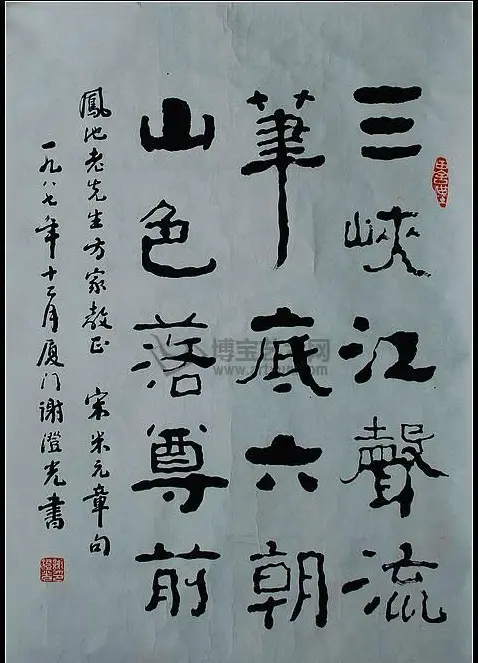 三峽江聲流
筆底六朝
山色落尊前
鳳池老先生方家教正 宋米元章句
一九八七年十二月厦门谢澄光書
博宝 网